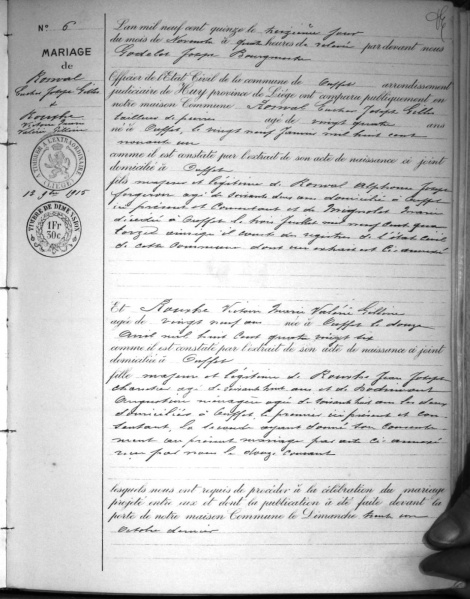 N° 6
MARIAGE
de
Ronval
Eucher Joseph Gilles
&
Rouxhe
Victoire Marie
Valérie Gilline
TIMBRE EXTRAORDINAIRE
LIÈGE
12 9bre 1915
TIMBRE DE DIMENSION
1 Fr
30 c.
L'an mil neuf cent quinze le treizième jour
du mois de Novembre à quatre heures de relevée par devant nous
Godelet Joseph Bourgmestre
Officier de l'Etat Civil de la commune de Ouffet arrondissement
judiciaire de Huy province de Liège ont comparu publiquement en
notre maison Commune Ronval Eucher Joseph Gilles
tailleur de pierres âgé de vingt quatre ans
né à Ouffet, le vingt neuf Janvier mil huit cent
nonante un
comme il est constaté par l'extrait de son acte de naissance ci joint
domicilié à Ouffet
fils majeur et légitime de Ronval Alphonse Joseph
âgé de soixante deux ans domicilié à Ouffet
ci présent et Consentant et de Mignolet Marie
décédée à Ouffet le trois Juillet mil neuf cent qua
torze ainsi qu'il conste du registre de l'état civil
de cette Commune dont un extrait est Ci-annexé
Et Rouxhe Victoire Marie Valérie Gilline
agée de vingt neuf ans née à Ouffet le douze
Avril mil huit Cent quatre vingt six
comme il est constaté par l'extrait de son acte de naissance ci joint
domiciliée à Ouffet
fille majeure et légitime de Rouxhe Jean Joseph
âgé de ans et de
Augustine ménagère agée de soixante ans les deux
domiciliés à Ouffet le premier ci présent et con-
sentant, la seconde ayant donné son consente
ment au présent mariage par acte Ci-annexé
reçu par nous le douze courant
lesquels nous ont requis de procéder à la célébration du mariage
projeté entre eux et dont la publication a été faite devant la
porte de notre maison Commune le Dimanche trente un
Octobre dernier